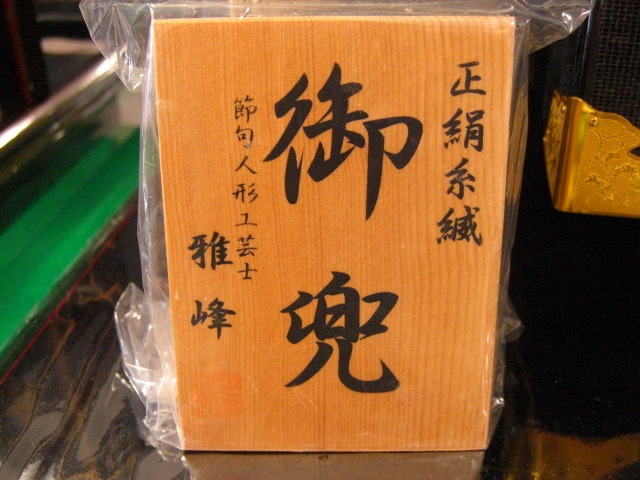 正絹糸縅
御兜
節句人形工芸士
雅峰